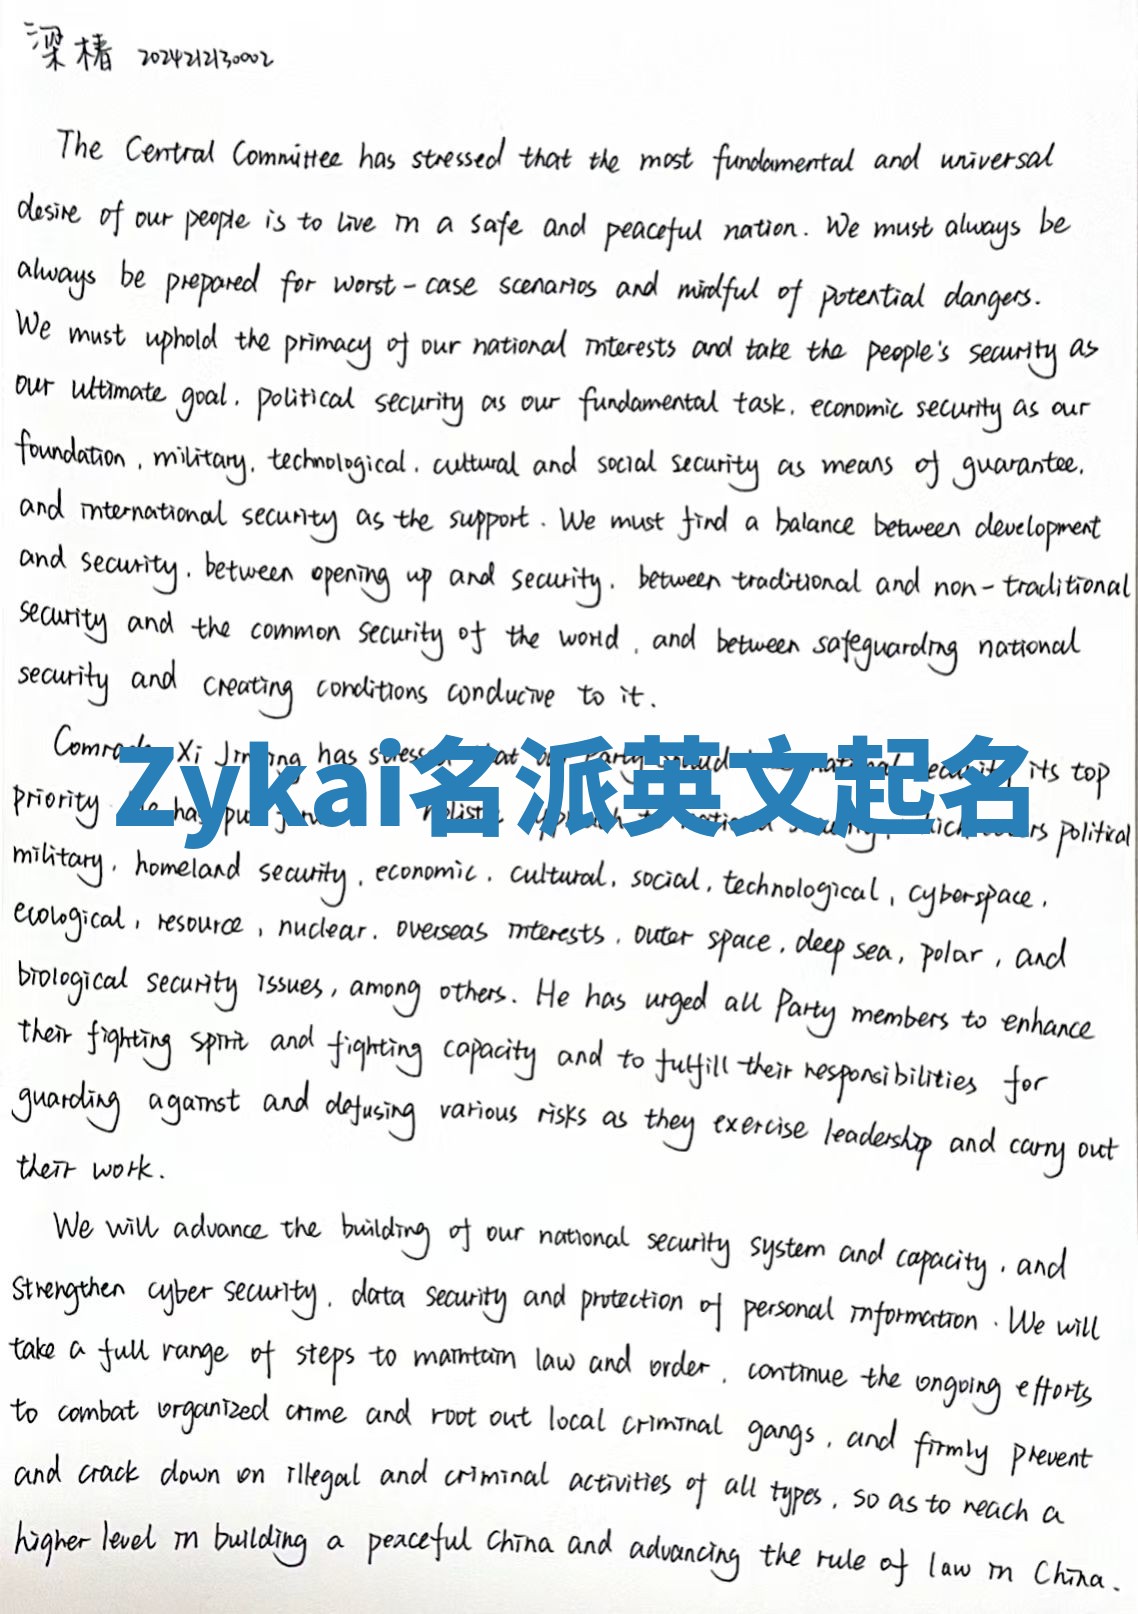 梁椿 2024212130002
The Central Committee has stressed that the most fundamental and universal
desire of our people is to live in a safe and peaceful nation. We must always be
always be prepared for worst-case scenarios and mindful of potential dangers.
We must uphold the primacy of our national interests and take the people's security as
our ultimate goal, political security as our fundamental task, economic security as our
foundation, military, technological, cultural and social security as means of guarantee,
and international security as the support. We must find a balance between development
and security, between opening up and security, between traditional and non-traditional
security and the common security of the world, and between safeguarding national
security and creating conditions conducive to it.
Xi has its top
Zykai名派英文起名
priority political
military, homeland security, economic, cultural, social, technological, cyberspace,
ecological, resource, nuclear, overseas interests, outer space, deep sea, polar, and
biological security issues, among others. He has urged all Party members to enhance
their fighting spirit and fighting capacity and to fulfill their responsibilities for
guarding against and defusing various risks as they exercise leadership and carry out
their work.
We will advance the building of our national security system and capacity, and
strengthen cyber security, data security and protection of personal information. We will
take a full range of steps to maintain law and order, continue the ongoing efforts
to combat organized crime and root out local criminal gangs, and firmly prevent
and crack down on illegal and criminal activities of all types, so as to reach a
higher level in building a peaceful China and advancing the rule of law in China.